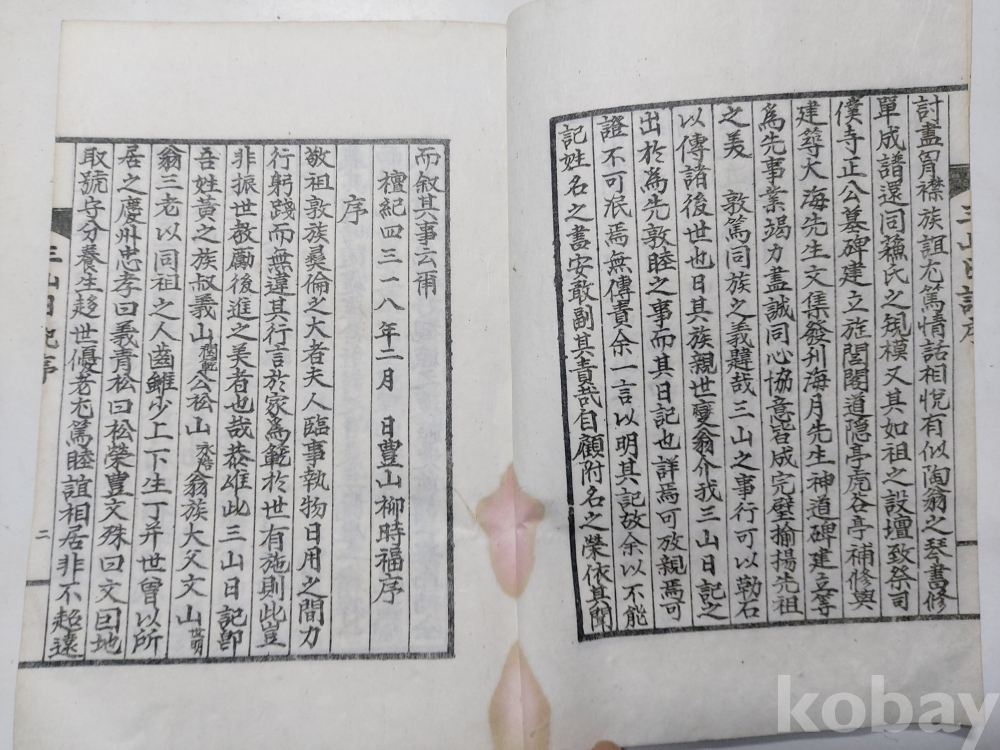 討盡胷襟族誼尤篤情話相悅有似陶翁之琴書修
單成譜還同蘓氏之規模又其如祖之設壇致祭司
僕寺正公墓碑建立旌閭閣道隐亭虎谷亭補修與
建尋大海先生文集發刋海月先生神道碑建立等
爲先事業竭力盡誠同心協意皆成完璧揄揚先祖
之美 敦篤同族之義韙哉三山之事行可以勒石
以傳諸後世也日其族親世燮翁介我三山日記之
出於爲先敦睦之事而其日記也詳焉可放親焉可
證不可泯焉無傳責余一言以明其記故余以不能
記姓名之畵安敢副其責哉自顧附名之榮依其聞
三山日記序
而叙其事云爾
檀紀四三一八年二月 日豊山柳時福序
序
敬祖敦族彛倫之大者夫人臨事執物日用之間力
行躬踐而無違其行言於家爲範於世有施則此豈
非振世教勵後進之美者也哉恭惟此三山日記卽
吾姓黃之族叔義山潤乾公松山永浩翁族大父文山世明
翁三老以同祖之人齒雖少上下生丁并世曾以所
居之慶州忠孝曰義青松曰松榮豊文殊曰文因地
取號守分養生趍世優老尤篤睦誼相居非不超遠
三山日記序
二
kobay